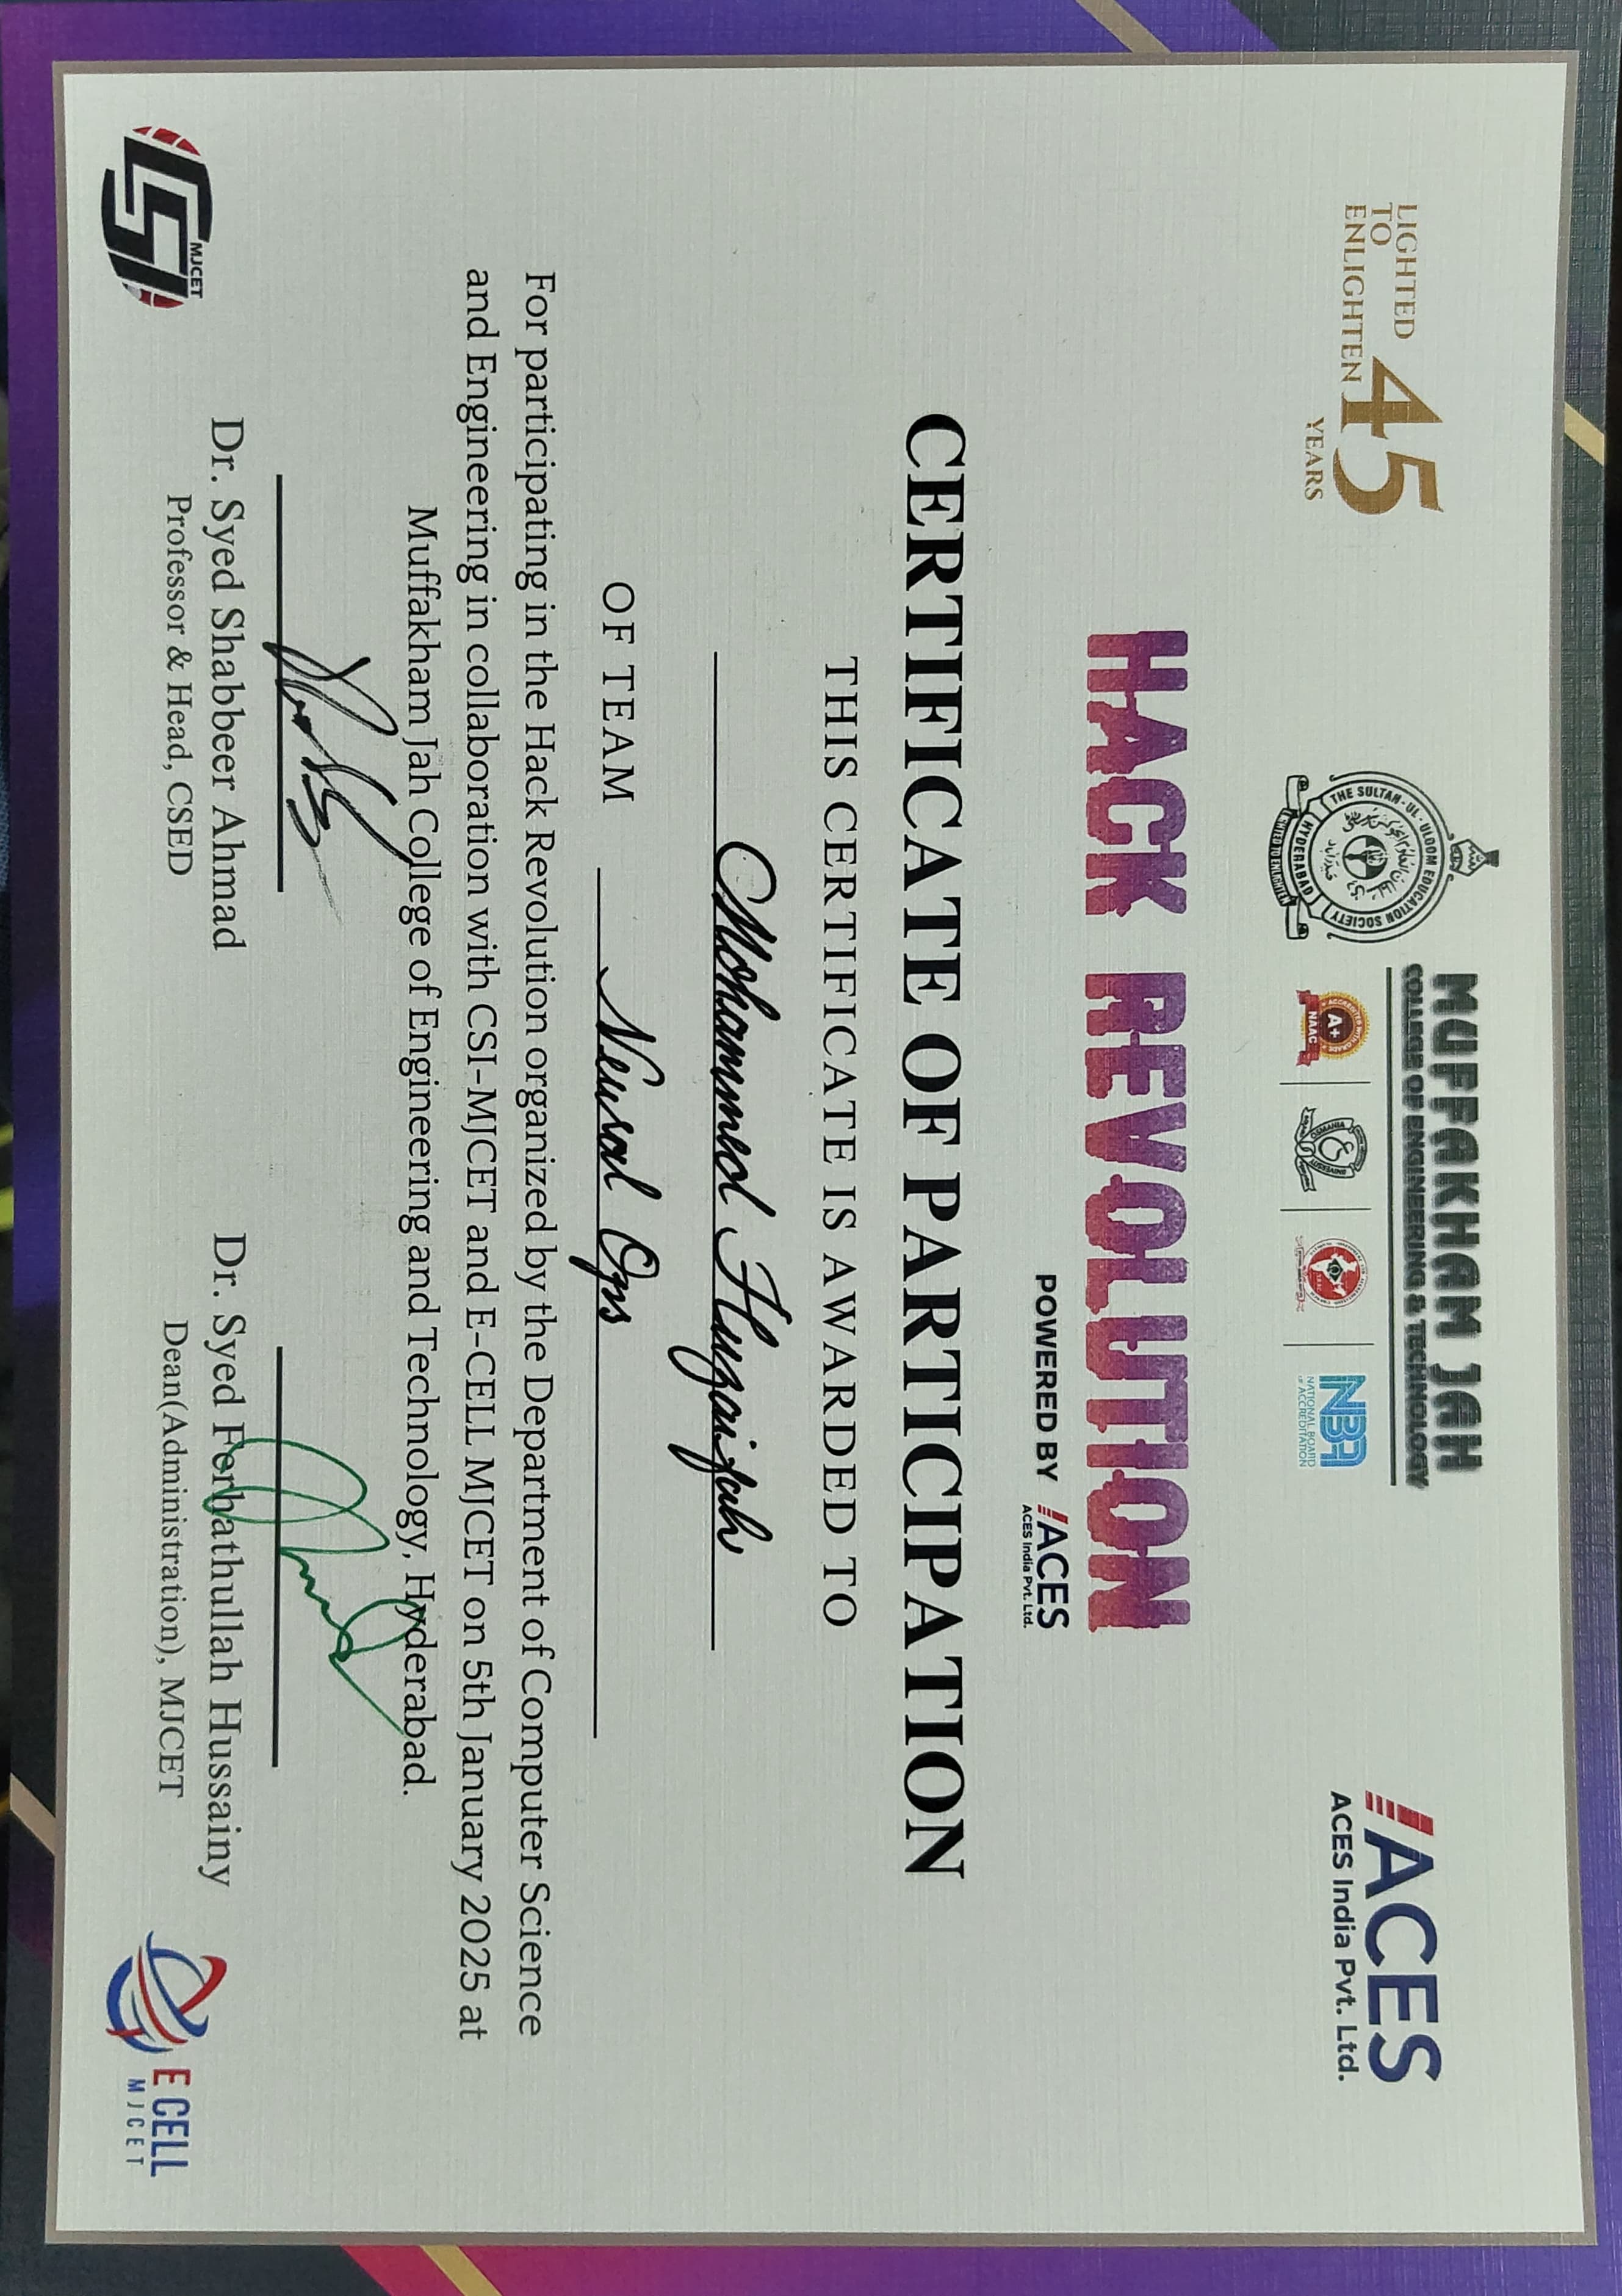 LIGHTED
TO
ENLIGHTEN
45
YEARS
THE SULTAN-UL-ULOOM EDUCATION SOCIETY
HYDERABAD
LIGHTED TO ENLIGHTEN
MUFFAKHAM JAH
COLLEGE OF ENGINEERING & TECHNOLOGY
A+
NAAC
NBA
NATIONAL BOARD
OF ACCREDITATION
ACES
ACES India Pvt. Ltd.
HACK REVOLUTION
POWERED BY ACES
ACES India Pvt. Ltd.
CERTIFICATE OF PARTICIPATION
THIS CERTIFICATE IS AWARDED TO
Mohammed Huzaifah
OF TEAM Neural Ops
For participating in the Hack Revolution organized by the Department of Computer Science
and Engineering in collaboration with CSI-MJCET and E-CELL MJCET on 5th January 2025 at
Muffakham Jah College of Engineering and Technology, Hyderabad.
Dr. Syed Shabbeer Ahmad
Professor & Head, CSED
Dr. Syed Ferhathullah Hussainy
Dean(Administration), MJCET
MJCET
CSI
E CELL
MJCET